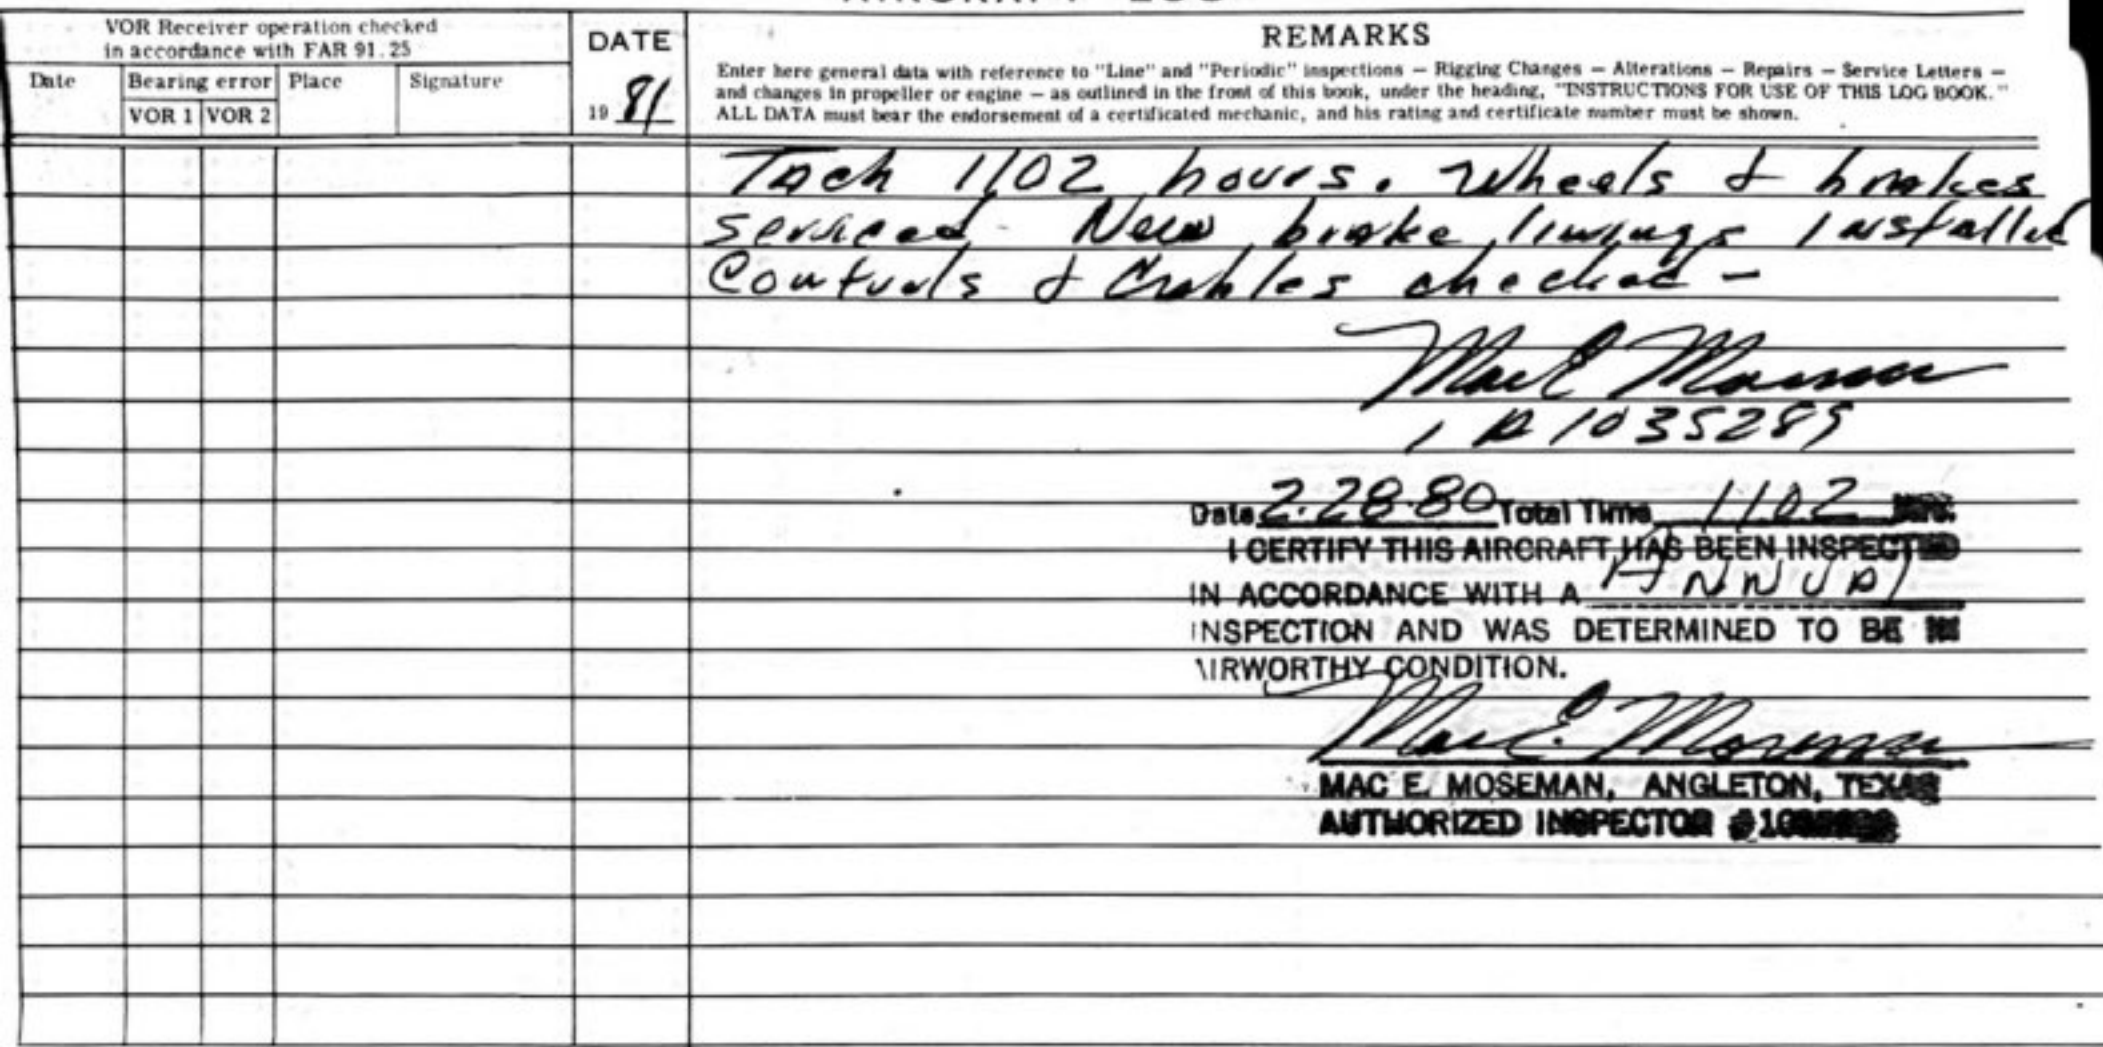 AIRCRAFT LOG
VOR Receiver operation checked
in accordance with FAR 91.25
Date
Bearing error
Place
Signature
VOR 1 VOR 2
DATE
19 81
REMARKS
Enter here general data with reference to "Line" and "Periodic" inspections — Rigging Changes — Alterations — Repairs — Service Letters —
and changes in propeller or engine — as outlined in the front of this book, under the heading, "INSTRUCTIONS FOR USE OF THIS LOG BOOK."
ALL DATA must bear the endorsement of a certificated mechanic, and his rating and certificate number must be shown.
Tach 1102 hours. Wheels & brakes
serviced - New brake linings installed
Controls & Cables checked -
Mac E Moseman
1035289
Date 2-28-80 Total Time 1102
I CERTIFY THIS AIRCRAFT HAS BEEN INSPECTED
IN ACCORDANCE WITH A ANNUAL
INSPECTION AND WAS DETERMINED TO BE IN
AIRWORTHY CONDITION.
Mac E. Moseman
MAC E. MOSEMAN, ANGLETON, TEXAS
AUTHORIZED INSPECTOR